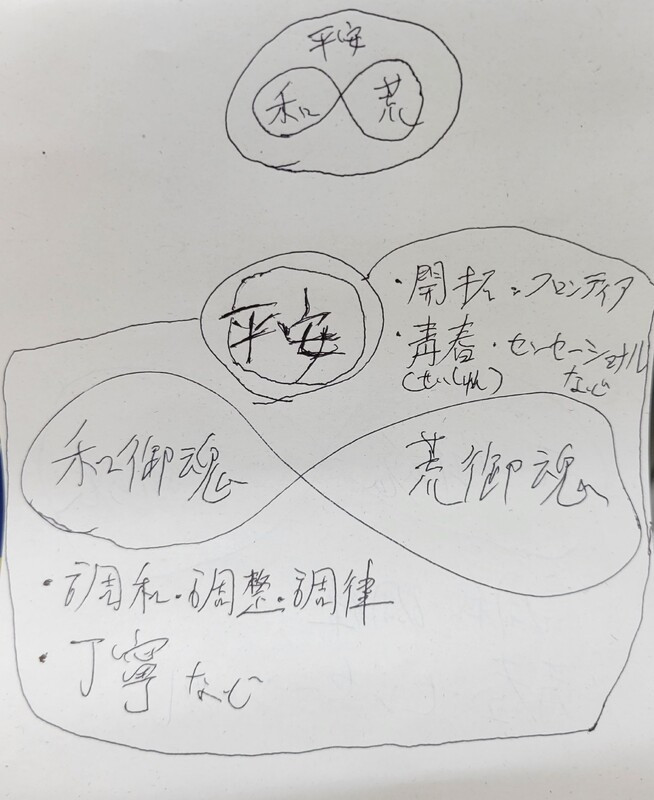 平安
和 荒
平安
・開拓・フロンティア
・青春・センセーショナル
(せいしゅん) など
和御魂 荒御魂
・調和・調整・調律
・丁寧 など